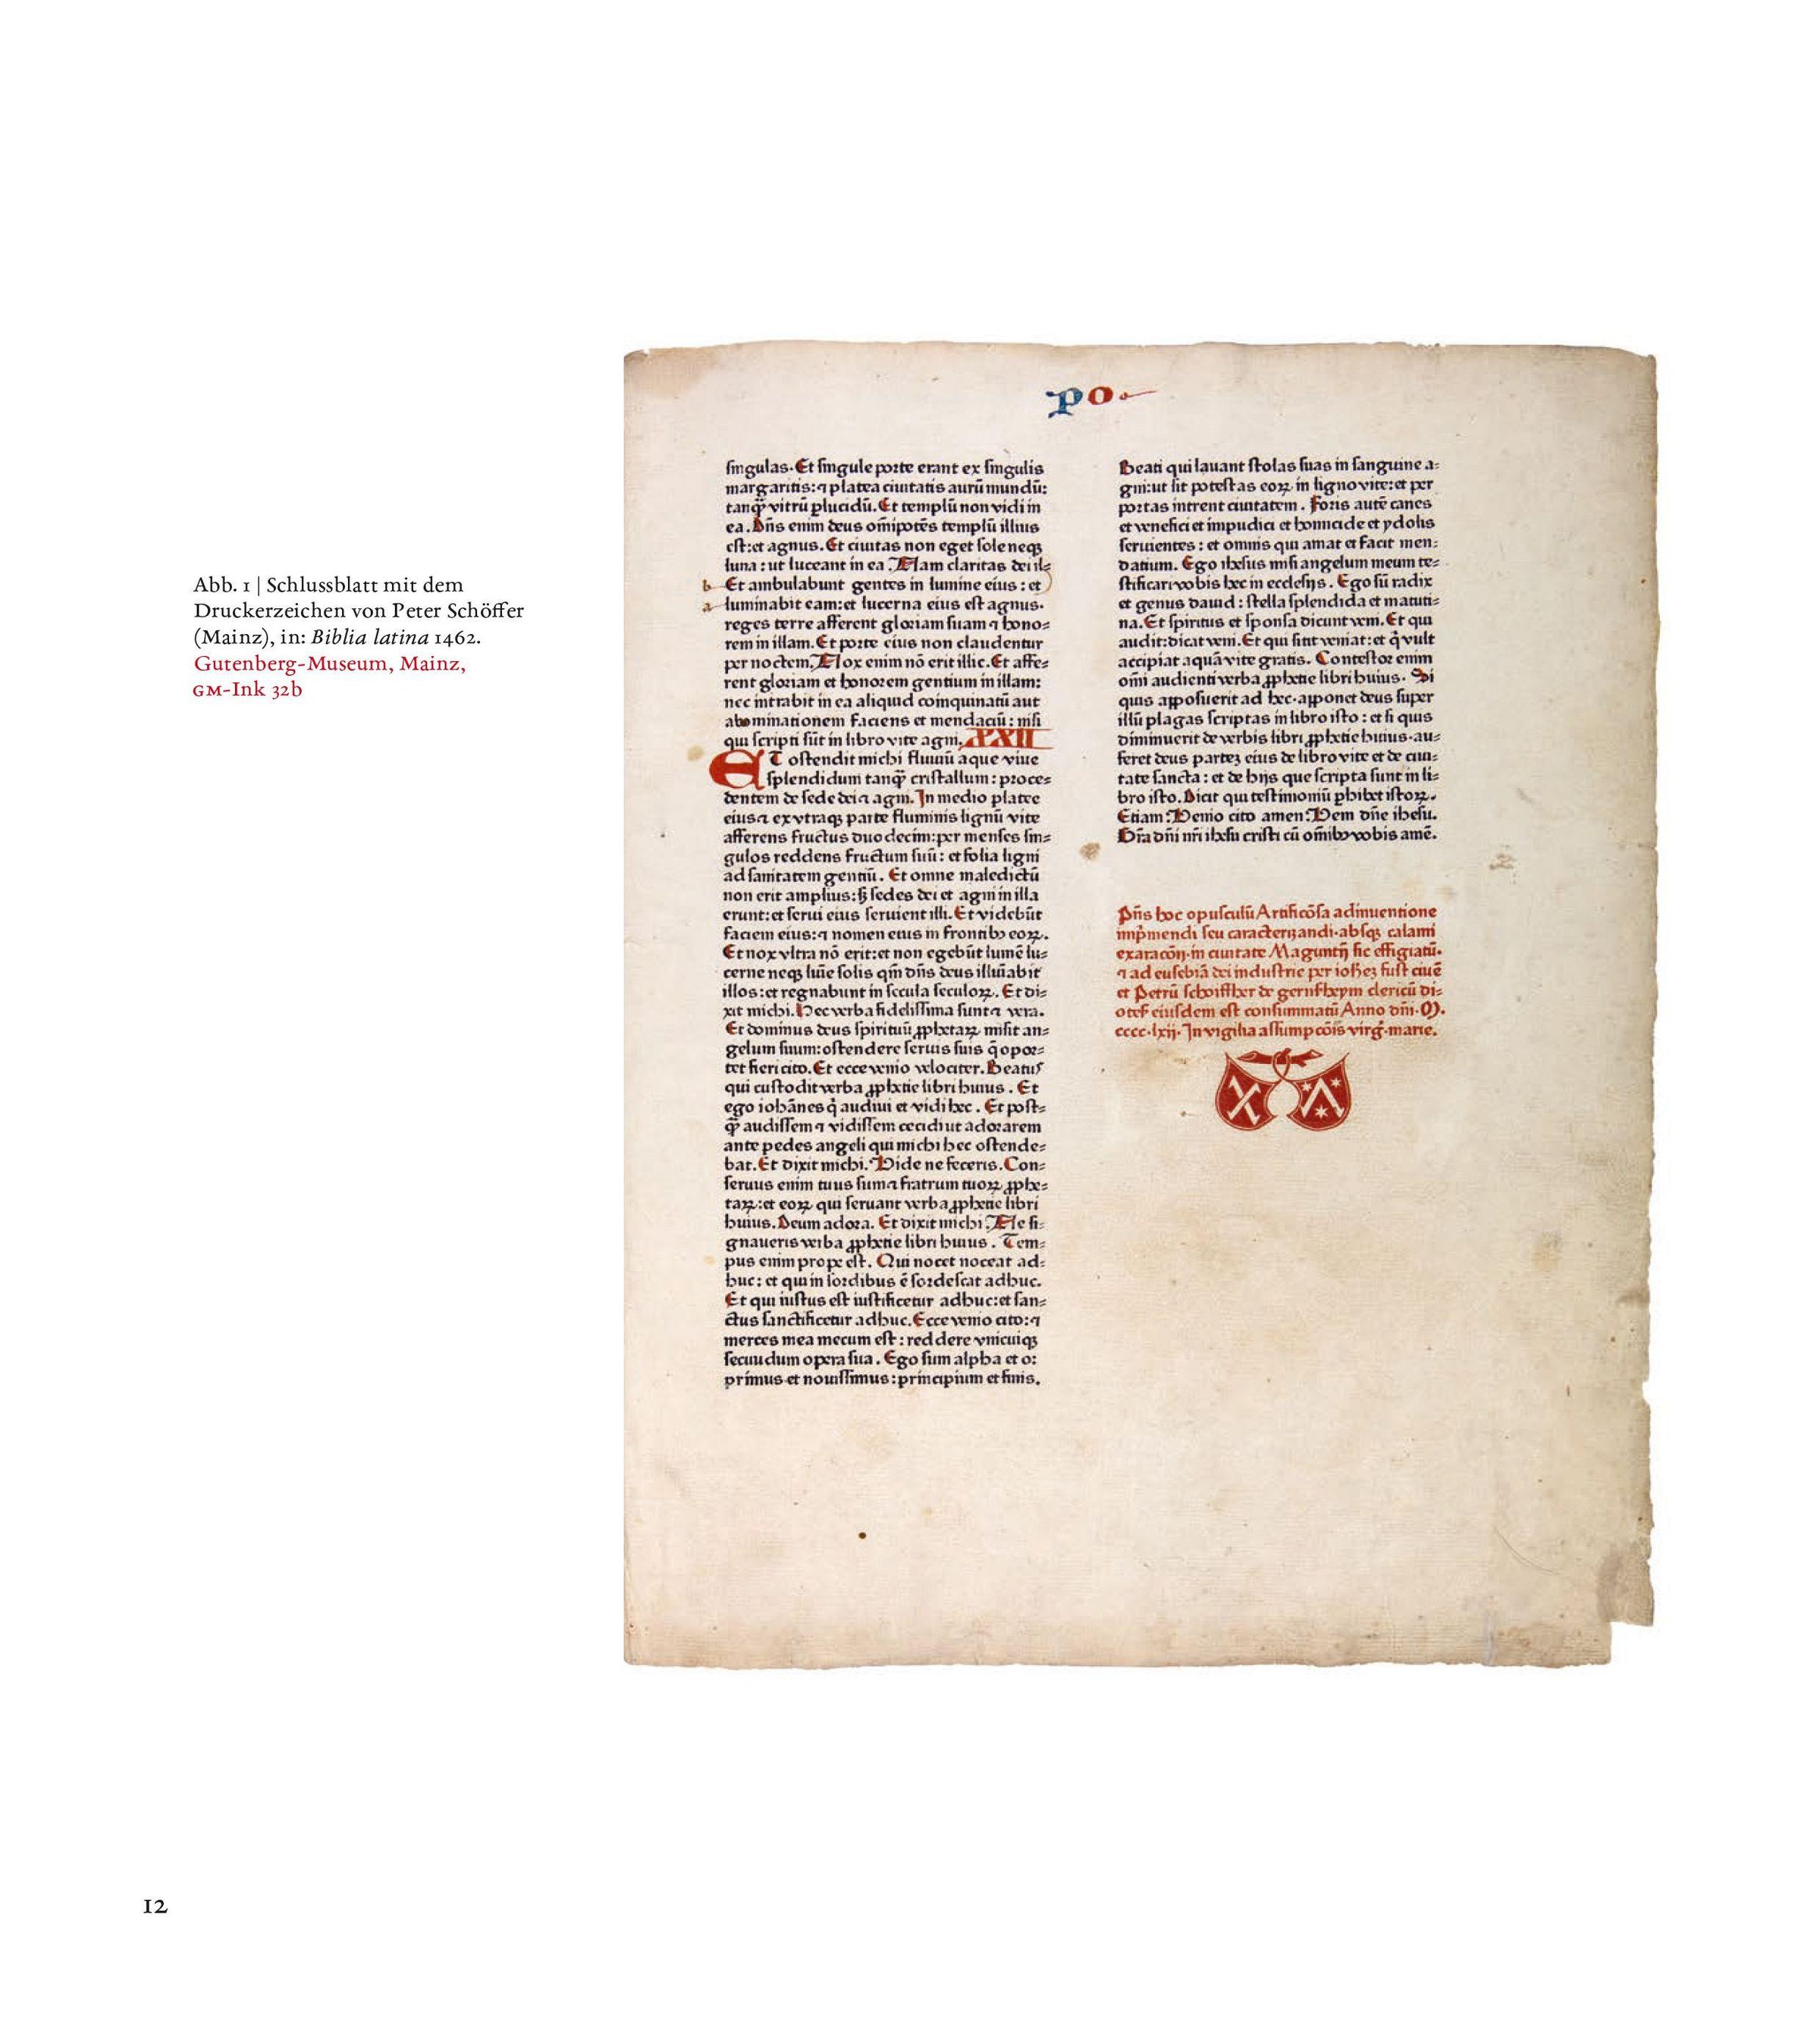 Abb. 1 | Schlussblatt mit dem
Druckerzeichen von Peter Schöffer
(Mainz), in: Biblia latina 1462.
Gutenberg-Museum, Mainz,
GM-Ink 32b
po.
singulas. Et singule porte erant ex singulis
margaritis: ⁊ platea ciuitatis aurū mundū:
tanq̄ vitrū ꝑlucidū. Et templū non vidi in
ea. Dn̄s enim deus om̄ipotēs templū illius
est: et agnus. Et ciuitas non eget sole neqꝫ
luna: ut luceant in ea. Nam claritas dei il⸗
b Et ambulabunt gentes in lumine eius: et
a luminabit eam: et lucerna eius est agnus.
reges terre afferent gloriam suam ⁊ hono⸗
rem in illam. Et porte eius non claudentur
per noctem. Nox enim nō erit illic. Et affe⸗
rent gloriam et honorem gentium in illam:
nec intrabit in ea aliquid coinquinatū aut
abominationem faciens et mendaciū: nisi
qui scripti sūt in libro vite agni. XXII
ET ostendit michi fluuiū aque viue
splendidum tanq̄ cristallum: proce⸗
dentem de sede dei ⁊ agni. In medio platee
eius ⁊ ex vtraqꝫ parte fluminis lignū vite
afferens fructus duodecim: per menses sin⸗
gulos reddens fructum suū: et folia ligni
ad sanitatem gentiū. Et omne maledictū
non erit amplius: sꝫ sedes dei et agni in illa
erunt: et serui eius seruient illi. Et videbūt
faciem eius: ⁊ nomen eius in frontibꝫ eoꝝ.
Et nox vltra nō erit: et non egebūt lumē lu⸗
cerne neqꝫ lūie solis qm̄ dn̄s deus illūiabit
illos: et regnabunt in secula seculoꝝ. Et di⸗
xit michi. Hec verba fidelissima sunt ⁊ vera.
Et dominus deus spirituū ꝓphetaꝝ misit an⸗
gelum suum: ostendere seruis suis q̄ opor⸗
tet fieri cito. Et ecce venio velociter. Beatus
qui custodit verba ꝓphetie libri huius. Et
ego iohānes q̇ audiui et vidi hec. Et post⸗
q̄ audissem ⁊ vidissem: cecidi ut adorarem
ante pedes angeli qui michi hec ostende⸗
bat. Et dixit michi. Vide ne feceris. Con⸗
seruus enim tuus sum ⁊ fratrum tuoꝝ ꝓphe⸗
taꝝ: et eoꝝ qui seruant verba ꝓphetie libri
huius. Deum adora. Et dixit michi. Ne si⸗
gnaueris verba ꝓphetie libri huius. Tem⸗
pus enim prope est. Qui nocet noceat ad⸗
huc: et qui in sordibus ē sordescat adhuc.
Et qui iustus est iustificetur adhuc: et san⸗
ctus sanctificetur adhuc. Ecce venio cito: ⁊
merces mea mecum est: reddere vnicuiqꝫ
secuudum opera sua. Ego sum alpha et o:
primus et nouissimus: principium et finis.
Beati qui lauant stolas suas in sanguine a⸗
gni: ut sit potestas eoꝝ in ligno vite: et per
portas intrent ciuitatem. Foris autē canes
et venefici et impudici et homicide et ydolis
seruientes: et omnis qui amat et facit men⸗
datium. Ego ihesus misi angelum meum te⸗
stificari vobis hec in ecclesijs. Ego sū radix
et genus dauid: stella splendida et matuti⸗
na. Et spiritus et sponsa dicunt veni. Et qui
audit: dicat veni. Et qui sitit veniat: et q̇ vult
accipiat aquā vite gratis. Contestor enim
om̄i audienti verba ꝓphetie libri huius. Si
quis apposuerit ad hec. apponet deus super
illū plagas scriptas in libro isto: et si quis
diminuerit de verbis libri ꝓphetie huius. au⸗
feret deus parteꝫ eius de libro vite et de ciui⸗
tate sancta: et de hijs que scripta sunt in li⸗
bro isto. Dicit qui testimoniū ꝑhibet istoꝝ.
Etiam: Venio cito amen: Veni dn̄e ihesu.
Gr̄a dn̄i nr̄i ihesu cristi cū om̄ibꝫ vobis amē.
Pn̄s hoc opusculū Artificōsa adinuentione
imp̄mendi seu caracterizandi. absqꝫ calami
exaracōn. in ciuitate Magunt̄ij sic effigiatū.
⁊ ad eusebiā dei industrie per ioh̄eꝫ fust ciuē
et Petrū schoiffher de gernsheym clericū di⸗
otes̄ eiusdem est consummatū Anno dn̄i. M.
cccc. lxij. In vigilia assumpcōis virḡ. marie.
12